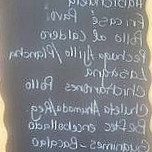 Fricasé Pavo
Pollo al Caldero
Pechuga Ajillo/Plancha
Lasagna
Chicharrones Pollo
Chuleta Ahumada/Reg
Bistec encebollado
Guanimes-Bacalao